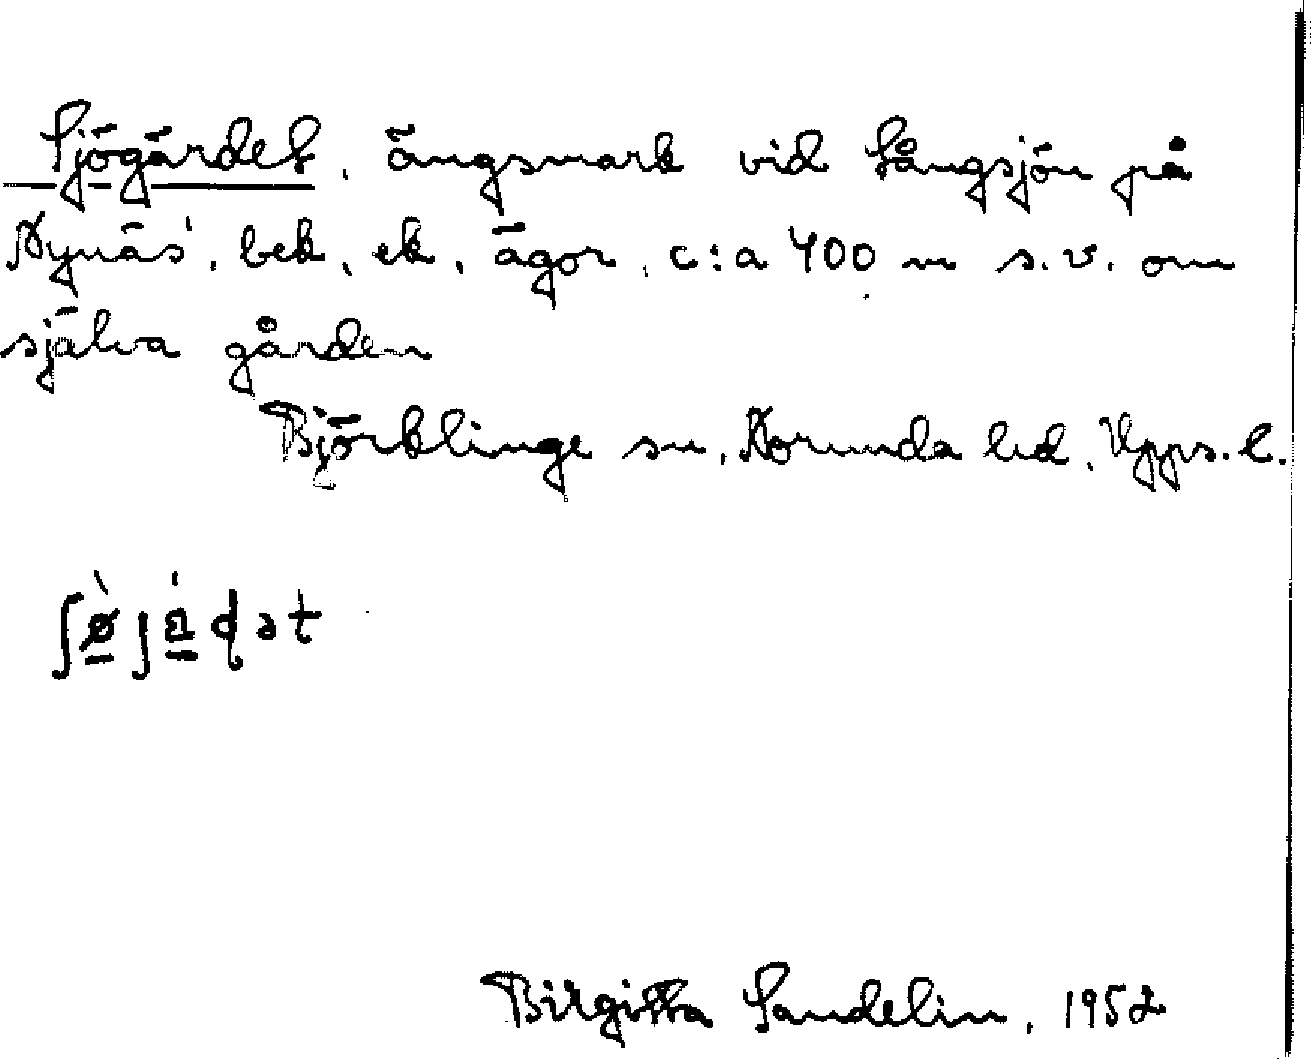 Sjögärdet, ängsmark vid Långsjön på
Nynäs', bek. ek. ägor, c:a 400 m s.v. om
själva gården
Björklinge sn, Norunda hd. Upps. l.
ʃø̀já̱ɖət
Birgitta Sandelin, 1952